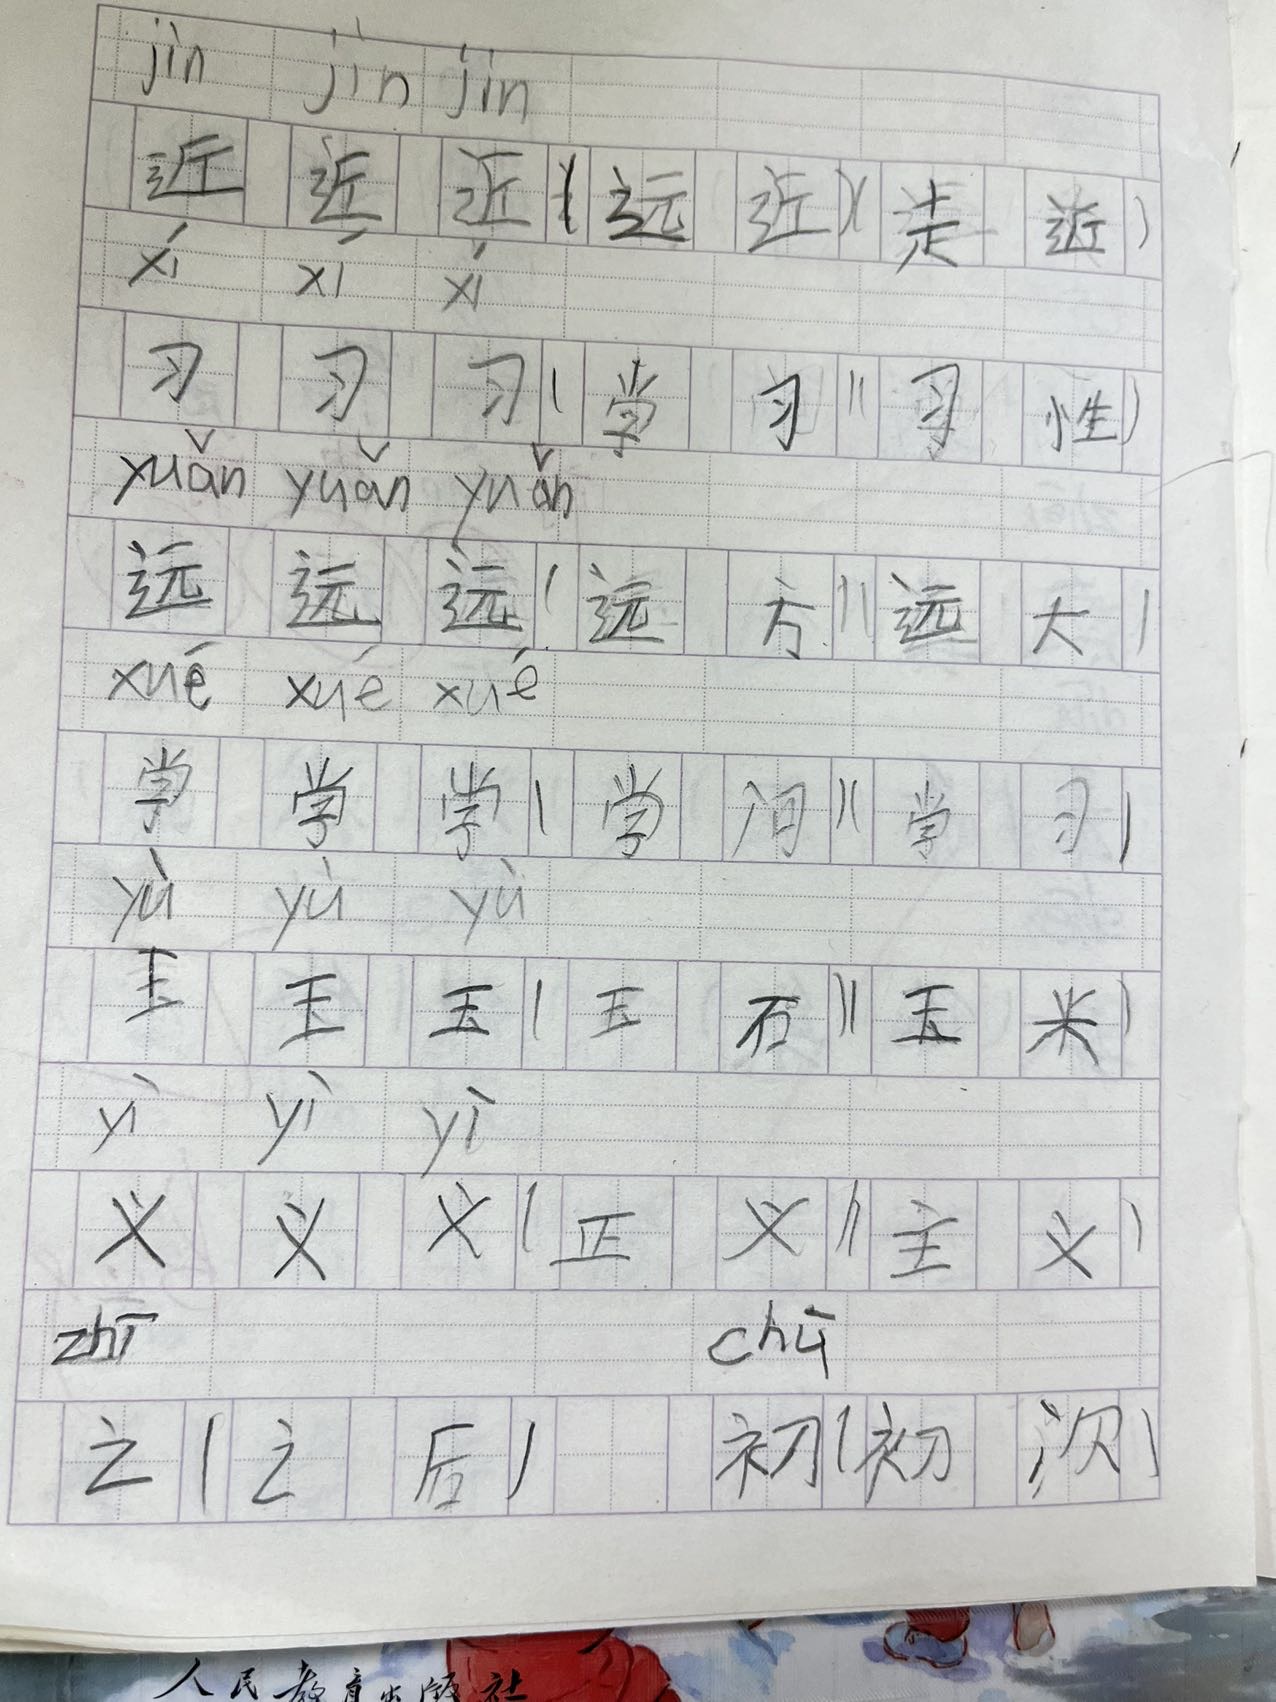 jìn jìn jìn
近 近 近(远 近)(走 近)
xí xí xí
习 习 习(学 习)(习 性)
yuǎn yuǎn yuǎn
远 远 远(远 方)(远 大)
xué xué xué
学 学 学(学 问)(学 习)
yù yù yù
玉 玉 玉(玉 石)(玉 米)
yì yì yì
义 义 义(正 义)(主 义)
zhī chū
之(之 后) 初(初 次)
人民教育出版社